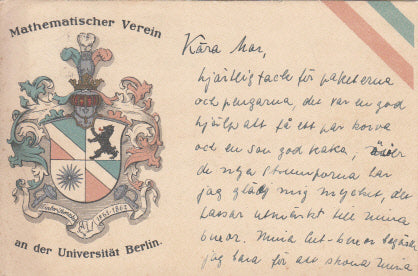 Mathematischer Verein
an der Universität Berlin.
1861 1862
Kära Mor,
hjärtlig tack för paketerna
och pengarna, det var en god
hjälp att få ett par korva
och en son god kaka,
de nya strumporna har
jag mig mycket, det
passar utmärkt till mina
benor. Mina
jag bara för att skona mina